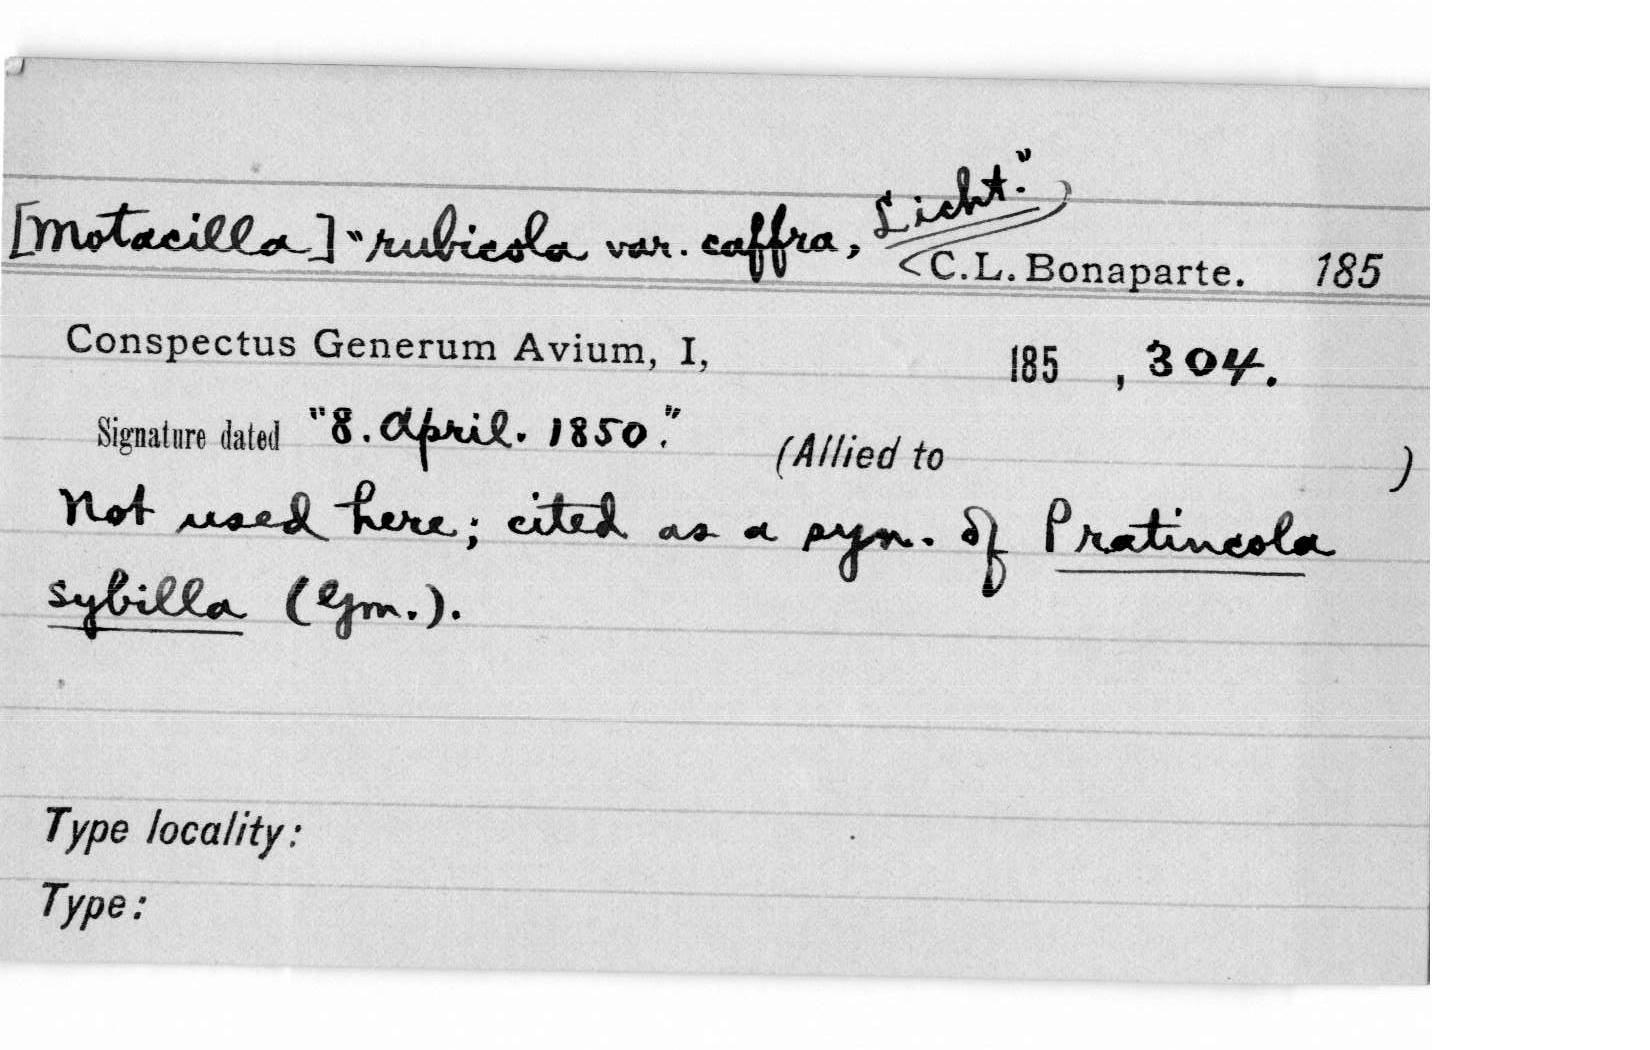 [Motacilla] "rubicola var. caffra, Licht."
C. L. Bonaparte. 185
Conspectus Generum Avium, I, 185 , 304.
Signature dated "8. April. 1850." (Allied to )
Not used here; cited as a syn. of Pratincola
sybilla (Gm.).
Type locality:
Type: